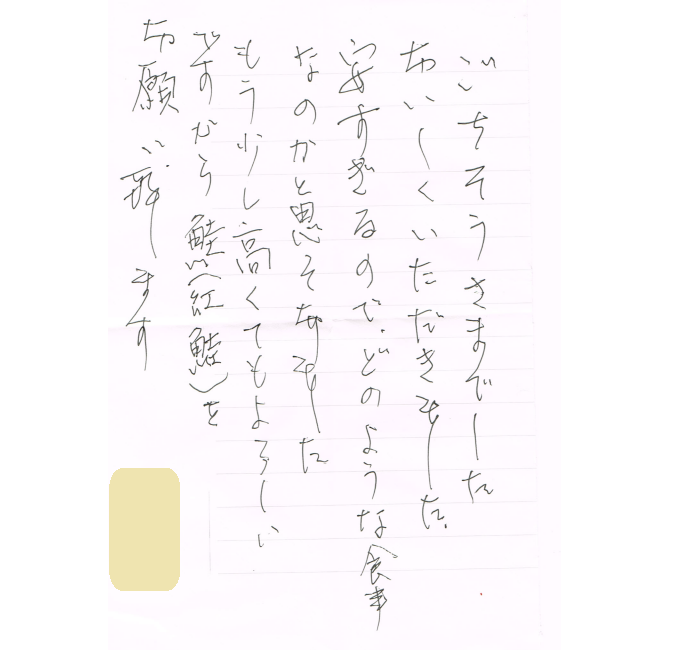 ごちそうさまでした
おいしくいただきました。
安すぎるので、どのような食事
なのかと思っておりました
もう少し高くてもよろしい
ですから 鮭(紅鮭)を
お願い致します